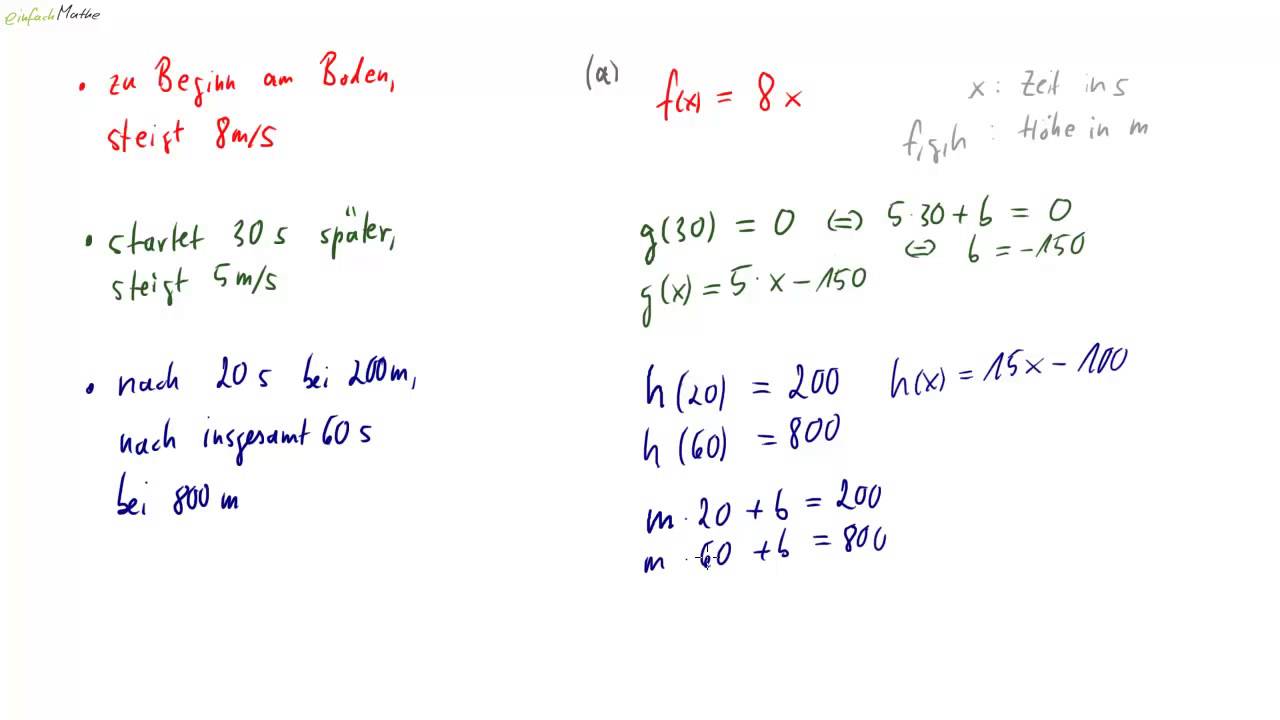 einfachMathe
• zu Beginn am Boden,
steigt 8m/s
• startet 30 s später,
steigt 5 m/s
• nach 20 s bei 200m,
nach insgesamt 60 s
bei 800 m
(a)
f(x) = 8x
x : Zeit in s
f,g,h : Höhe in m
g(30) = 0 ⇔ 5·30 + b = 0
⇔ b = -150
g(x) = 5·x - 150
h(20) = 200 h(x) = 15x - 100
h(60) = 800
m · 20 + b = 200
m · 60 + b = 800